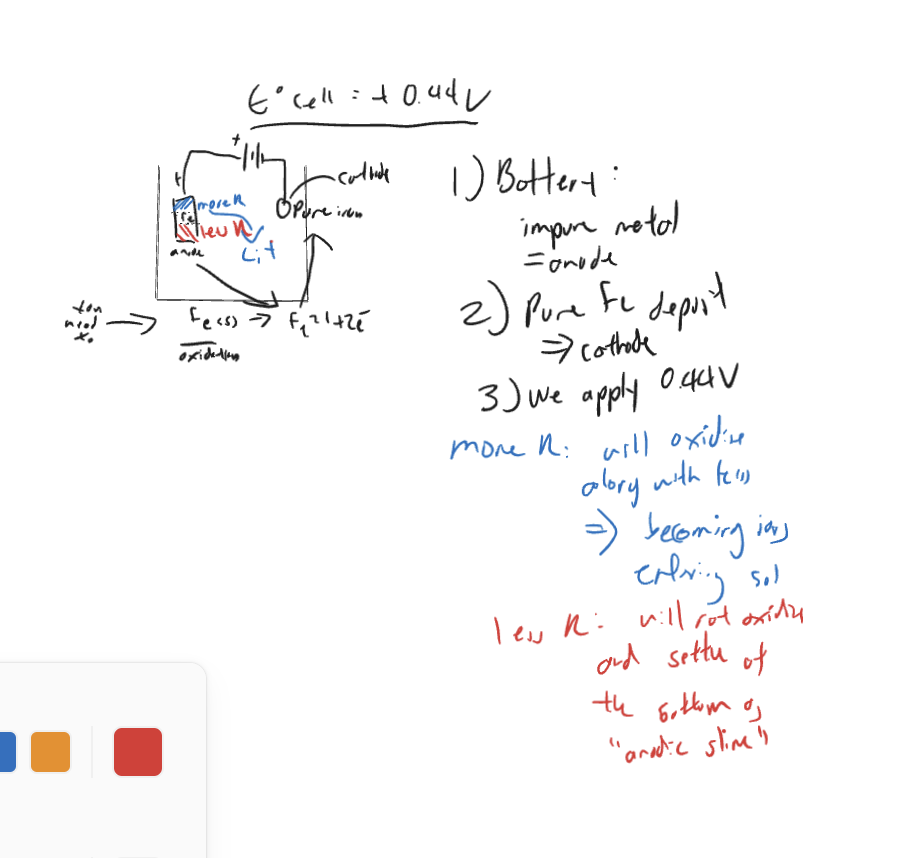 E° cell = + 0.44V
+
+
cathode
more R
Fe
Pure iron
less R
Li+
anode
Fe(s) → Fe2+ + 2e-
oxidation
1) Battery:
impure metal
= anode
2) Pure Fe deposit
⇒ cathode
3) we apply 0.44V
more R: will oxidize
along with Fe(s)
⇒ becoming ions
entering sol
less R: will not oxidize
and settle at
the bottom as
"anodic slime"